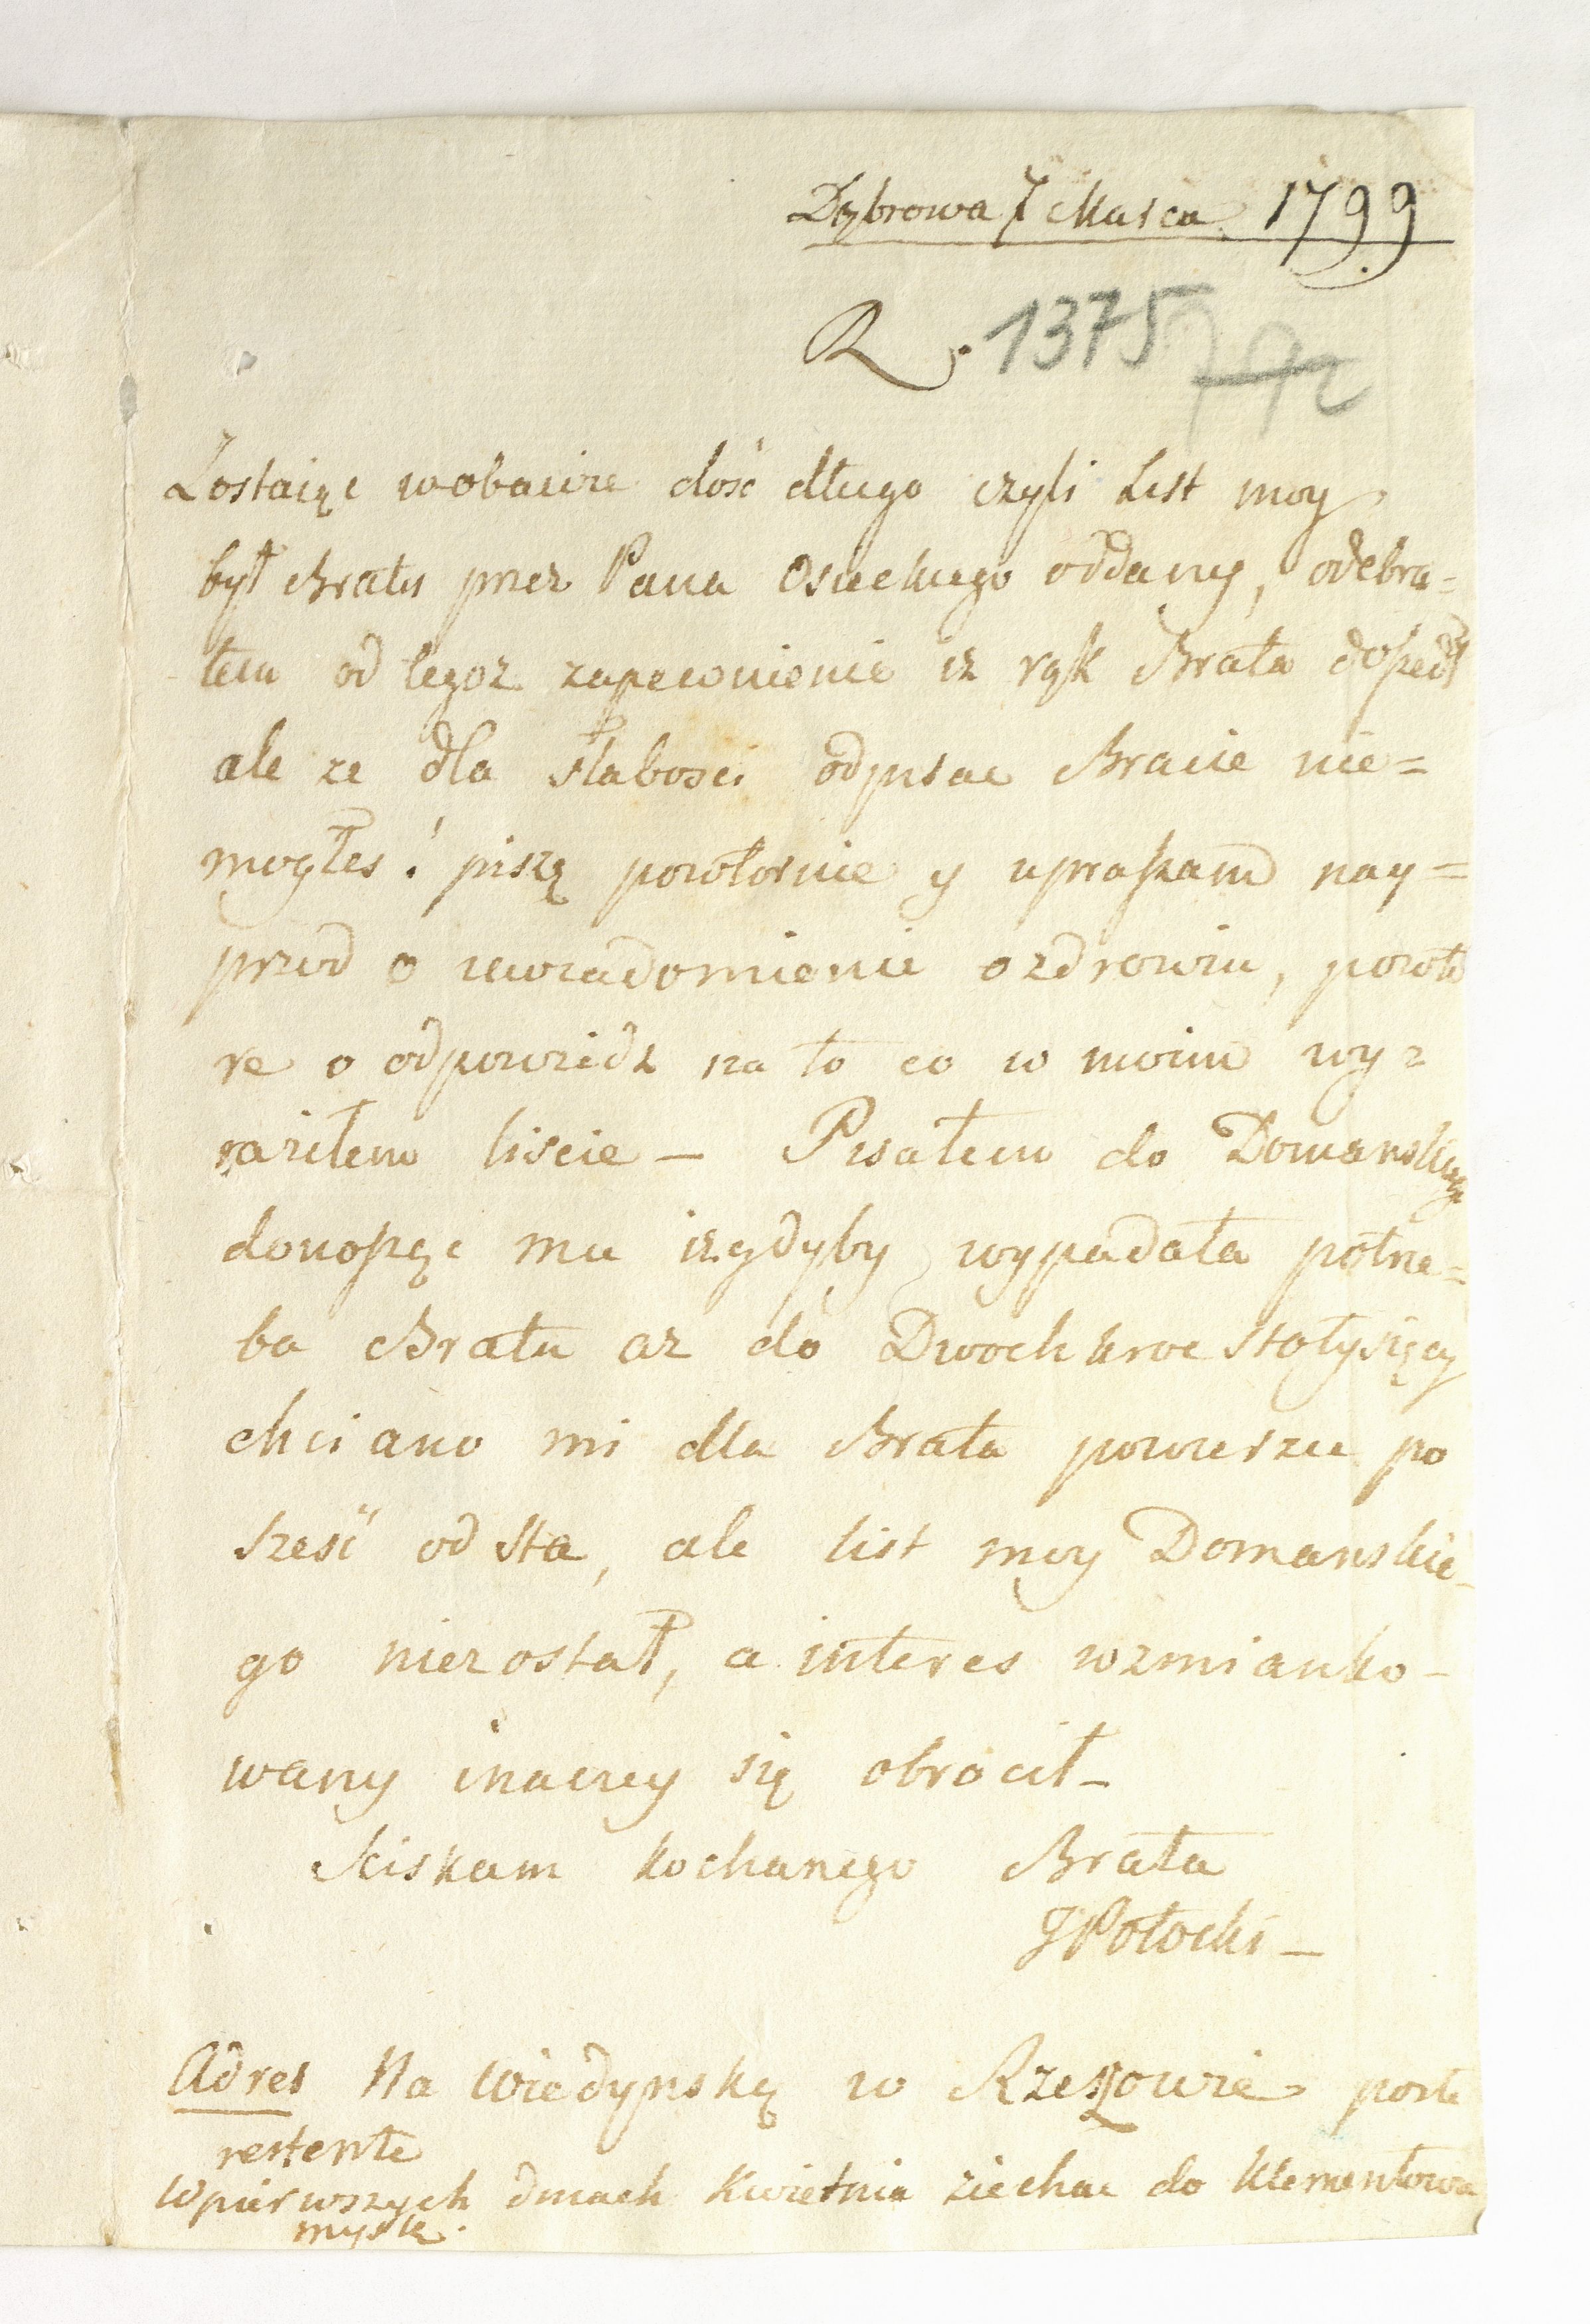 Dąbrowa 7 Marca 1799
R. 1375
Zostaiąc wobawie dość długo czyli List moy
był Bratu przez Pana Osieckiego oddany, odebra=
łem od tegoz zapewnienie iz rąk Brata doszedł
ale ze dla słabosci odpisac Bracie nie=
mogłes! piszę powtornie y upraszam nay=
przod o uwiadomienie o zdrowiu, powto
re o odpowiedz na to co w moim wy=
raziłem liscie — Pisałem do Domanskiego
donosząc mu iz gdyby wypadała potrze=
ba Bratu az do Dwoch kroc stotysięcy
chciano mi dla Brata powierzyc po
szesć od sta, ale list moy Domanskie-
go niezostał, a interes wzmianko-
wany inaczey się obrocił —
Sciskam kochanego Brata
JPotocki —
Adres Na Wiedynską w Rzeszowie poste
restente
W pierwszych dniach Kwietnia ziechac do Klementowa
myslę.